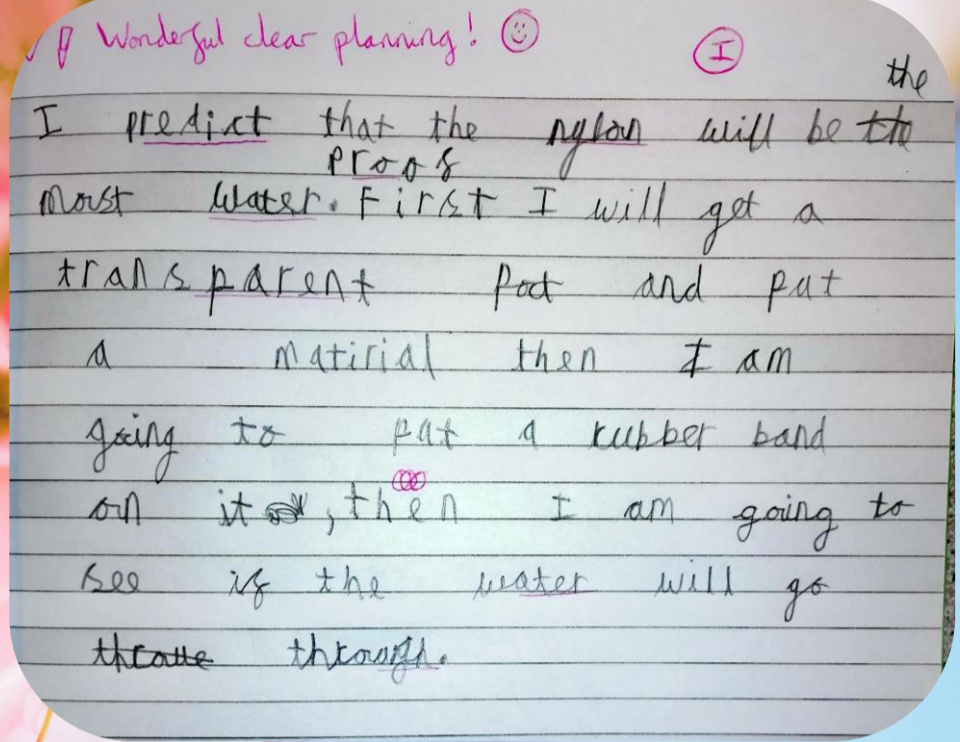 Wonderful clear planning!
I
the
I predict that the nylon will be
proof
most water. First I will get a
transparent pot and put
a matirial then I am
going to put a rubber band
on it, then I am going to
see if the water will go
through.